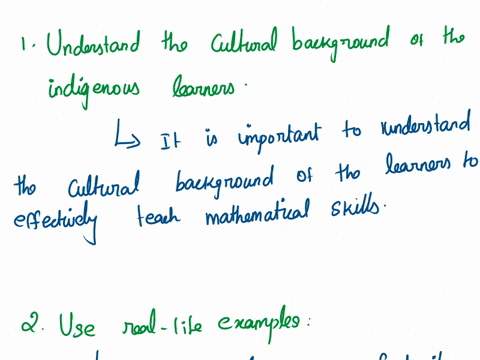 1. Understand the cultural background of the
indigenous learners.
↳ It is important to understand
the cultural background of the learners to
effectively teach mathematical skills.
2. Use real-life examples: